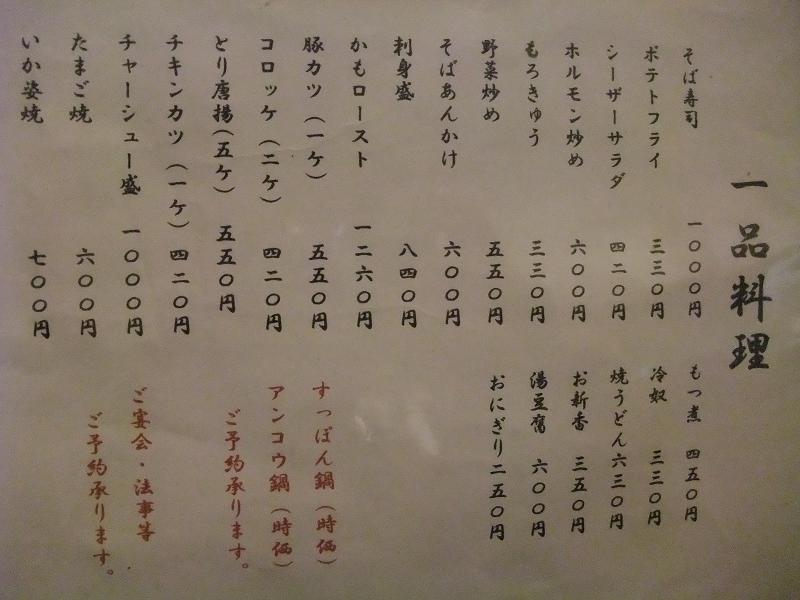 一品料理
そば寿司 一〇〇〇円
ポテトフライ 三三〇円
シーザーサラダ 四二〇円
ホルモン炒め 六〇〇円
もろきゅう 三三〇円
野菜炒め 五五〇円
そばあんかけ 六〇〇円
刺身盛 八四〇円
かもロースト 一二六〇円
豚カツ(一ケ) 五五〇円
コロッケ(二ケ) 四二〇円
とり唐揚(五ケ) 五五〇円
チキンカツ(一ケ) 四二〇円
チャーシュー盛 一〇〇〇円
たまご焼 六〇〇円
いか姿焼 七〇〇円
もつ煮 四五〇円
冷奴 三三〇円
焼うどん 六三〇円
お新香 三五〇円
湯豆腐 六〇〇円
おにぎり 二五〇円
すっぽん鍋(時価)
アンコウ鍋(時価)
ご予約承ります。
ご宴会・法事等
ご予約承ります。